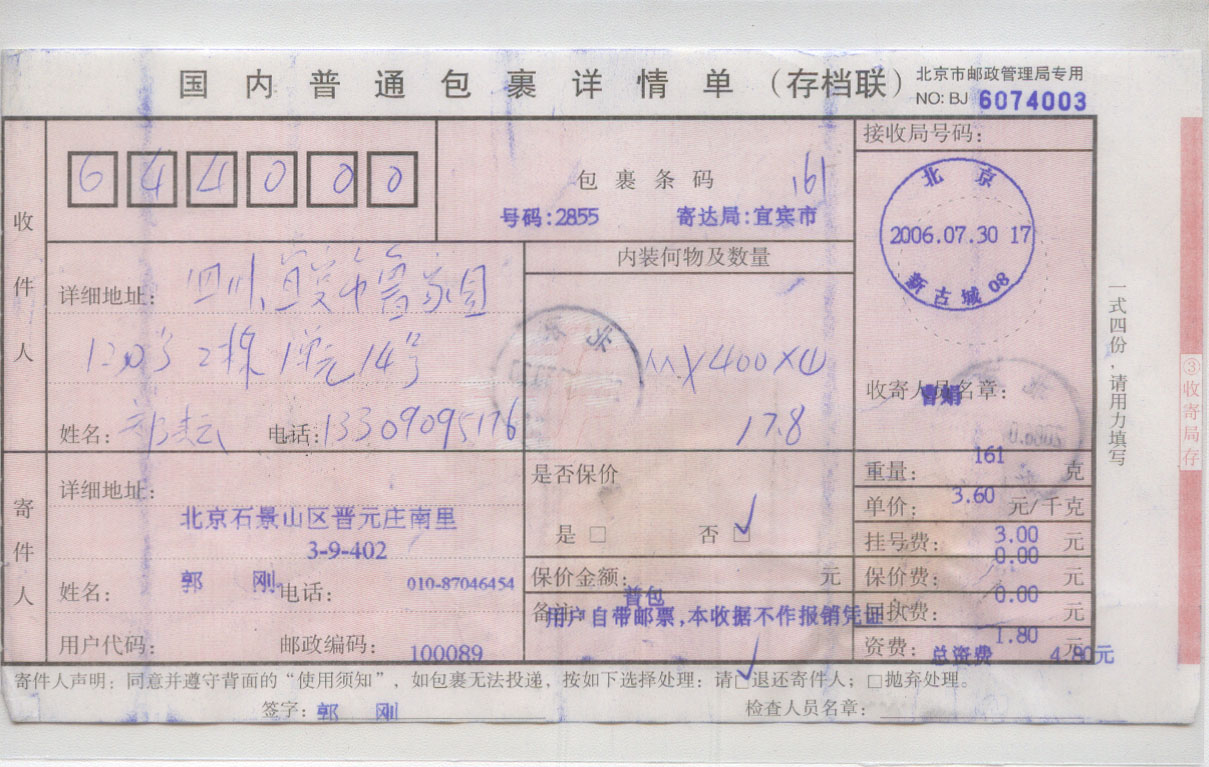 国内普通包裹详情单(存档联)
北京市邮政管理局专用
NO: BJ 6074003
收件人
644000
包裹条码
161
号码:2855 寄达局:宜宾市
接收局号码:
北京
2006.07.30 17
新古城 08
详细地址: 四川、宜宾市鲁家园
120号2栋1单元14号
姓名: 电话:13309095176
内装何物及数量
400×①
17.8
收寄人员名章:
曹娟
寄件人
详细地址:
北京石景山区晋元庄南里
3-9-402
姓名: 郭 刚 电话: 010-87046454
用户代码: 邮政编码: 100089
是否保价
是□ 否☑
保价金额: 元
备注: 普包
用户自带邮票,本收据不作报销凭证
重量: 161 克
单价: 3.60 元/千克
挂号费: 3.00 元
保价费: 0.00 元
回执费: 0.00 元
资费: 1.80 元
总资费 4.80元
寄件人声明:同意并遵守背面的“使用须知”,如包裹无法投递,按如下选择处理:请☑退还寄件人;□抛弃处理。
签字: 郭 刚
检查人员名章:
一式四份,请用力填写
③收寄局存